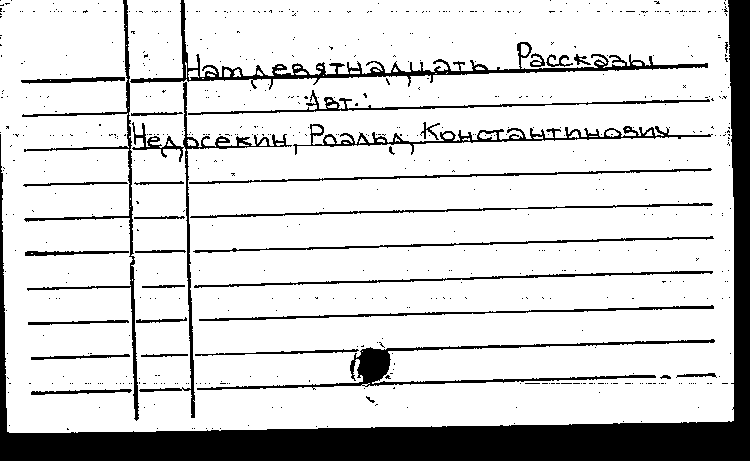 Нам девятнадцать. Рассказы
Авт.:
Недосекин, Роальд Константинович.